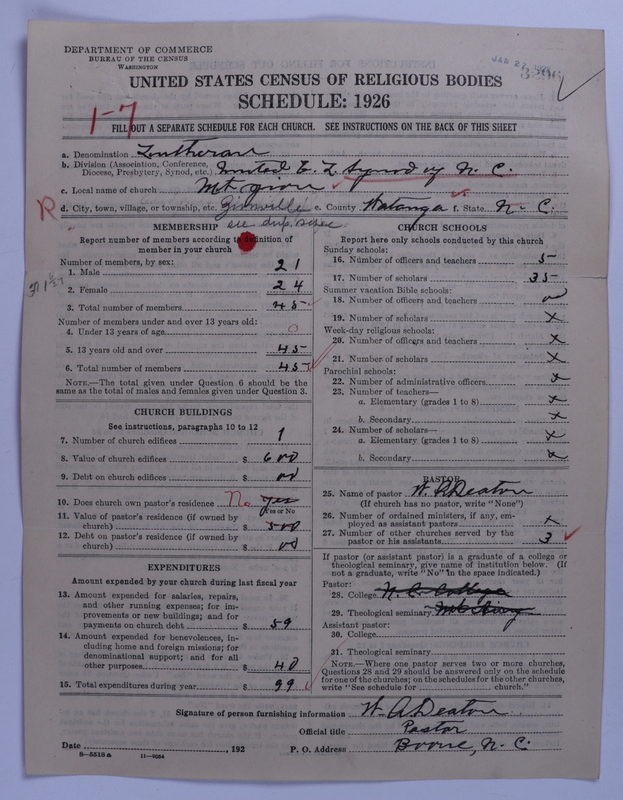 DEPARTMENT OF COMMERCE
BUREAU OF THE CENSUS
WASHINGTON
JAN 27 1928
UNITED STATES CENSUS OF RELIGIOUS BODIES
SCHEDULE: 1926
1-7
FILL OUT A SEPARATE SCHEDULE FOR EACH CHURCH. SEE INSTRUCTIONS ON THE BACK OF THIS SHEET
a. Denomination Lutheran
b. Division (Association, Conference, Diocese, Presbytery, Synod, etc.) United E. L. Synod of N. C.
c. Local name of church Mt. grove
R d. City, town, village, or township, etc. e. County Watauga f. State N- C.
MEMBERSHIP
Report number of members according to definition of member in your church
Number of members, by sex:
1. Male 21
2. Female 24
3. Total number of members 45
Number of members under and over 13 years old:
4. Under 13 years of age 0
5. 13 years old and over 45
6. Total number of members 45
NOTE.—The total given under Question 6 should be the same as the total of males and females given under Question 3.
CHURCH BUILDINGS
See instructions, paragraphs 10 to 12
7. Number of church edifices 1
8. Value of church edifices $ 600
9. Debt on church edifices $ 00
10. Does church own pastor's residence No yes
Yes or No
11. Value of pastor's residence (if owned by church) $ 500
12. Debt on pastor's residence (if owned by church) $ 00
EXPENDITURES
Amount expended by your church during last fiscal year
13. Amount expended for salaries, repairs, and other running expenses; for improvements or new buildings; and for payments on church debt $ 59
14. Amount expended for benevolences, including home and foreign missions; for denominational support; and for all other purposes $ 40
15. Total expenditures during year $ 99
CHURCH SCHOOLS
Report here only schools conducted by this church
Sunday schools:
16. Number of officers and teachers 5
17. Number of scholars 35
Summer vacation Bible schools:
18. Number of officers and teachers
19. Number of scholars x
Week-day religious schools:
20. Number of officers and teachers x
21. Number of scholars x
Parochial schools:
22. Number of administrative officers x
23. Number of teachers—
a. Elementary (grades 1 to 8) x
b. Secondary x
24. Number of scholars—
a. Elementary (grades 1 to 8) x
b. Secondary x
PASTOR
25. Name of pastor W. A. Deaton
(If church has no pastor, write "None")
26. Number of ordained ministers, if any, employed as assistant pastors x
27. Number of other churches served by the pastor or his assistants 3
If pastor (or assistant pastor) is a graduate of a college or theological seminary, give name of institution below. (If not a graduate, write "No" in the space indicated.)
Pastor:
28. College N. C. College
29. Theological seminary
Assistant pastor:
30. College
31. Theological seminary
NOTE.—Where one pastor serves two or more churches, Questions 28 and 29 should be answered only on the schedule for one of the churches; on the schedules for the other churches, write "See schedule for church."
Signature of person furnishing information W. A. Deaton
Official title Pastor
Date , 192 P. O. Address Boone, N. C.
8—5518a 11—9054